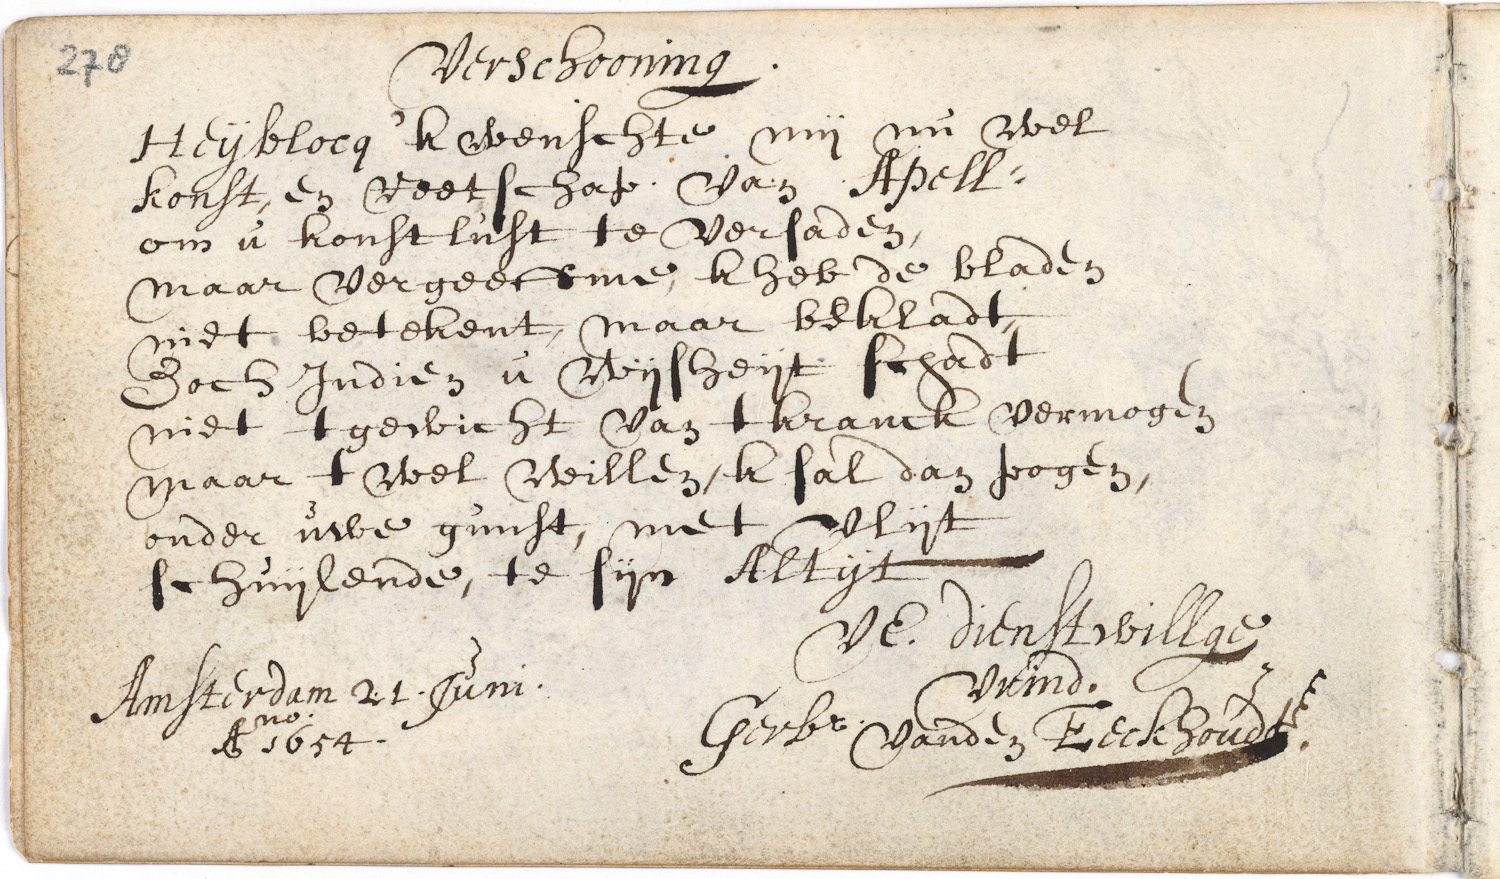 278
Verschooning.
Heÿblocq 'k wenschte mij nu wel
konst, en weetschap van Apell:
om u konstlust te versaden,
maar vergeeft me, k heb de bladen
niet betekent, maar bekladt,
Doch Indien u Wijsheijt schadt
niet tgewicht van t kranck vermogen
maar t wel willen, k sal dan pogen,
onder uwe gunst, met vlijt
schuijlende, te sijn Altijt
VE. dienstwillge
Vrind.
Amsterdam 21. Juni.
Gerbr. vanden Eeckhoudt.
Ano. 1654.